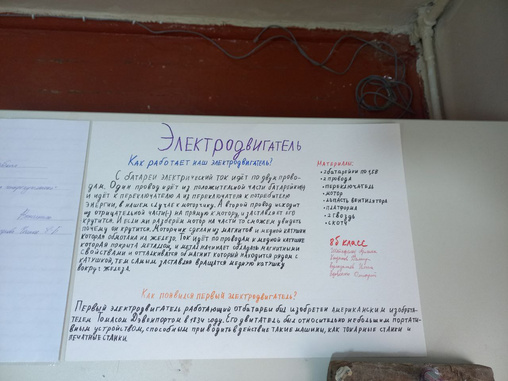 Электродвигатель
Как работает наш электродвигатель?
С батареи электрический ток идёт по двум прово-
дам. Один провод идёт из положительной части батарейки
и идёт к переключателю а из переключателя к потребителю
энергии, в нашем случае к моторчику. А второй провод исходит
из отрицательной части на прямую к мотору, и заставляет его
крутится. А если мы разберём мотор на части то сможем увидеть
почему он крутится. Моторчик сделан из магнитов и медной катушки
которая обмотана на железо. Ток идёт по проводам к медной катушке
которая покрыта металлом, и металл начинает обладать магнитными
свойствами и отталкивается от магнит который находится рядом с
катушкой, тем самым заставляя вращатся медную катушку
вокруг железа.
Как появился первый электродвигатель?
Первый электродвигатель работающий от батареи был изобретён американским изобре-
тателем Томасом Дэвенпортом в 1834 году. Его двигатель был относительно небольшим портатив-
ным устройством, способным приводить в действие такие машины, как токарные станки и
печатные станки.
Материалы:
•2 батарейки по
•2 провода
•переключатель
•мотор
•лопасть вентилятора
•платформа
•2 гвоздя
•скотч
8б класс